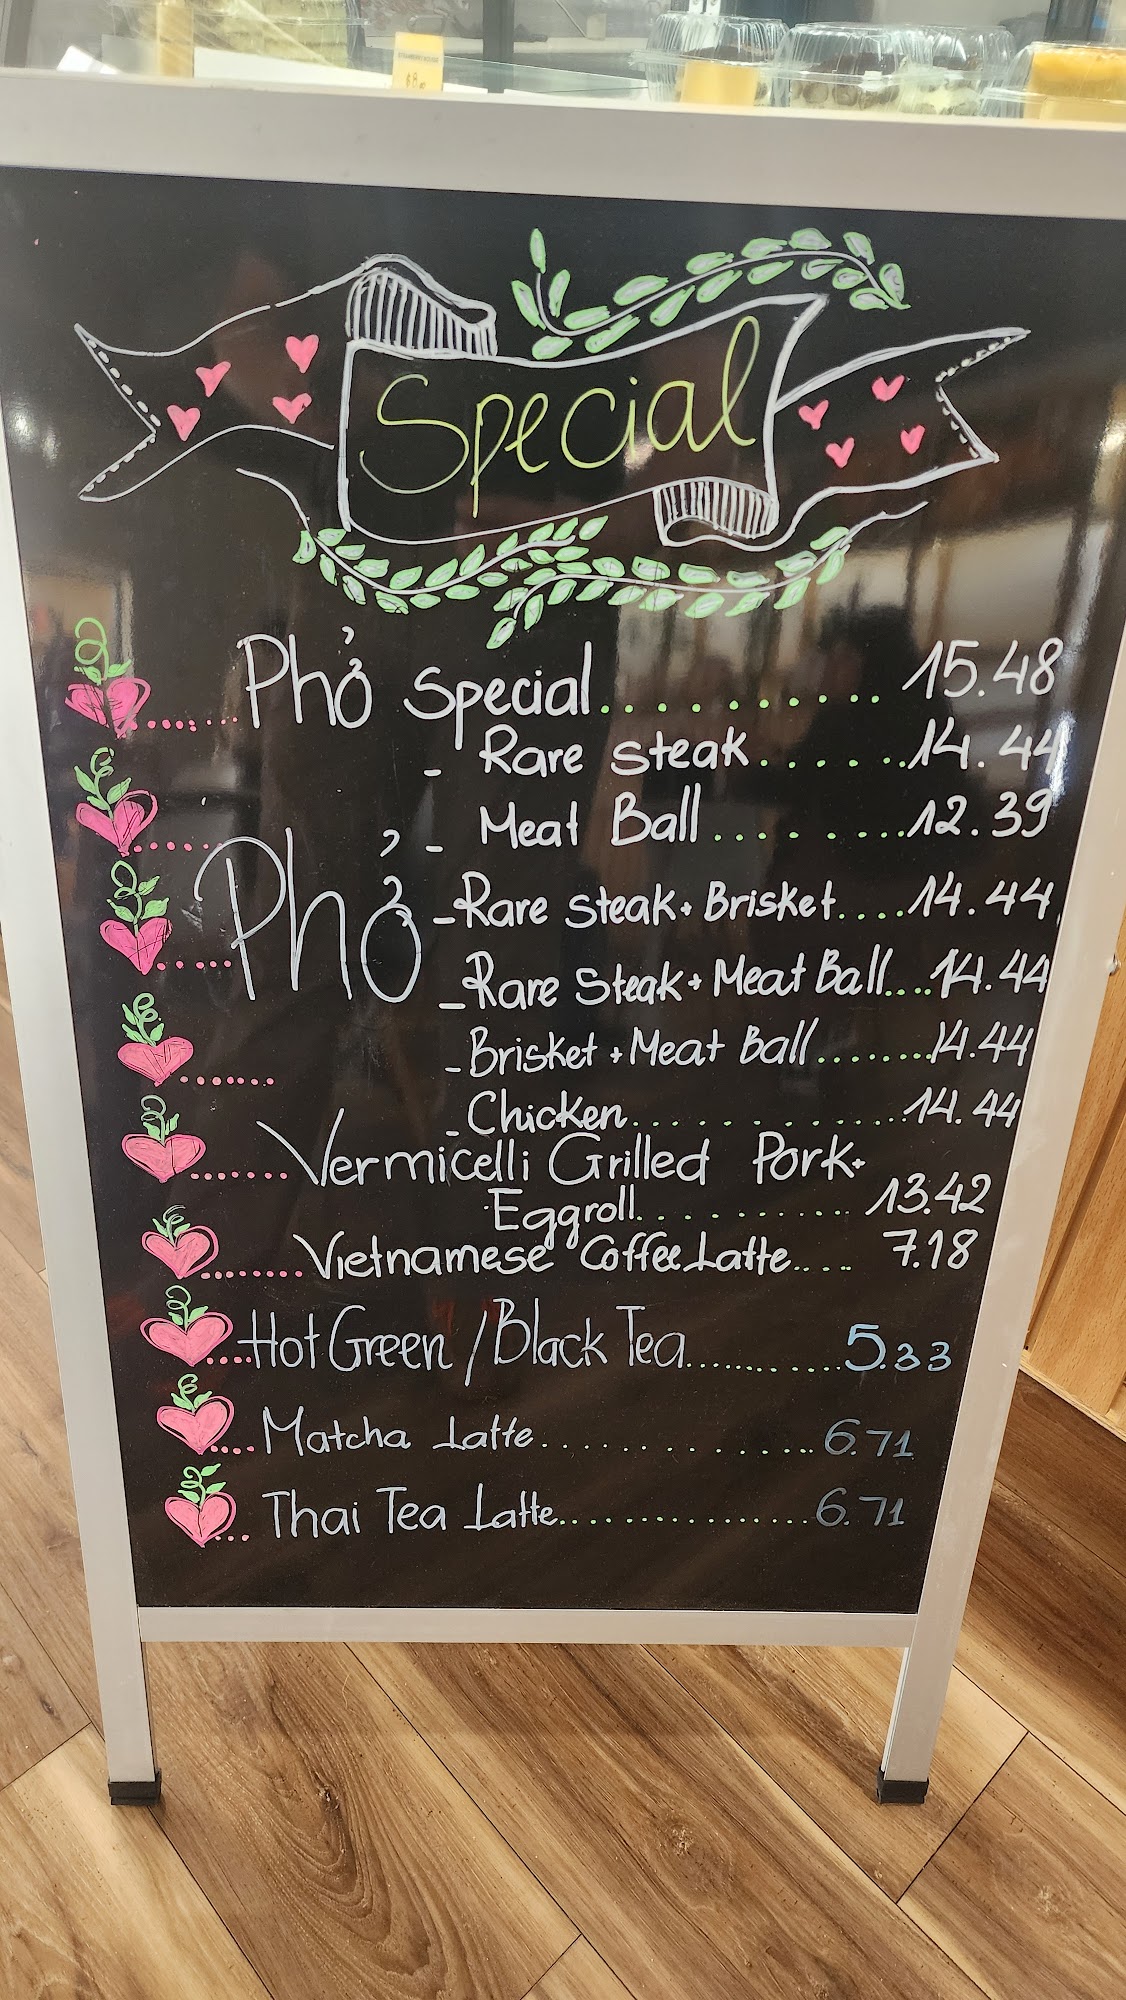 Special
Phở Special.......... 15.48
- Rare steak......14.44
- Meat Ball........12.39
Phở
-Rare steak+Brisket....14.44
-Rare Steak+Meat Ball....14.44
-Brisket+Meat Ball........14.44
-Chicken...........14.44
Vermicelli Grilled Pork+
Eggroll........... 13.42
Vietnamese Coffee Latte.... 7.18
Hot Green / Black Tea...........5.33
Matcha Latte.............. 6.71
Thai Tea Latte................6.71